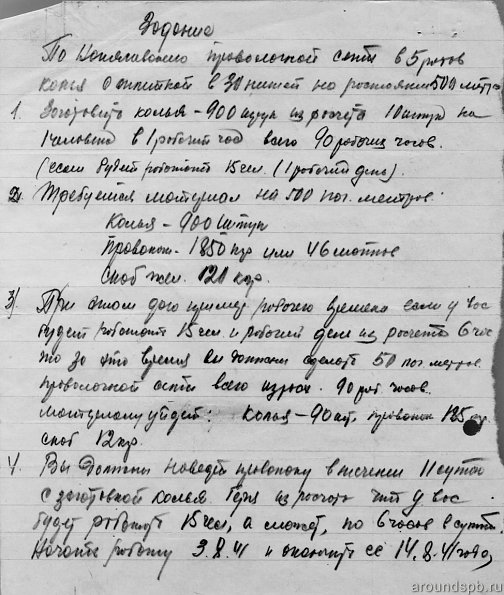 Задание
По наплетению проволочной сети в 5 рядов
колья с оплеткой в 30 нитей на расстоянии 500 метр.
1. Заготовить колья - 900 штук из расчета 10 штук на
1 человека в 1 рабочий час всего 90 рабочих часов.
(если будет работать 15 чел. (1 рабочий день).
2. Требуется материал на 500 пог. метров.
Колья - 900 штук
Проволок. - 1850 кгр или 46 мотков
Скоб жел. 120 кгр.
3) При этом даю пример рабочего времени если у вас
будет работать 15 чел и рабочий день из расчета 6 час
то за это время вы должны сделать 50 пог. метров
проволочной сети всего 90 раб. часов.
материалу уйдет: колья - 90 шт, проволок 185 кг
скоб 12 кгр.
4. Вы должны наведет проволоку в течении 11 суток
с заготовкой колья. Беря из расчета что у вас
будет работать 15 чел, а может, по 6 часов в сутки.
Начать работу 3.8.41 и окончить ее 14.8.41 года
aroundspb.ru